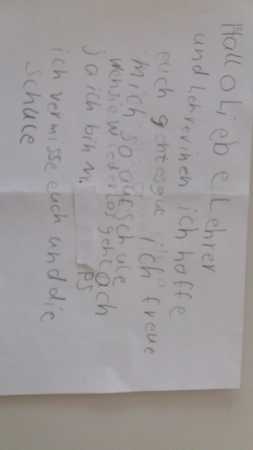 Hallo Liebe Lehrer
und Lehrerinen ich hoffe
euch geht es gut ich freue
mich so auf schule
wenn wieder los geht ach
ja ich bin
PS
ich vermisse euch und die
Schule